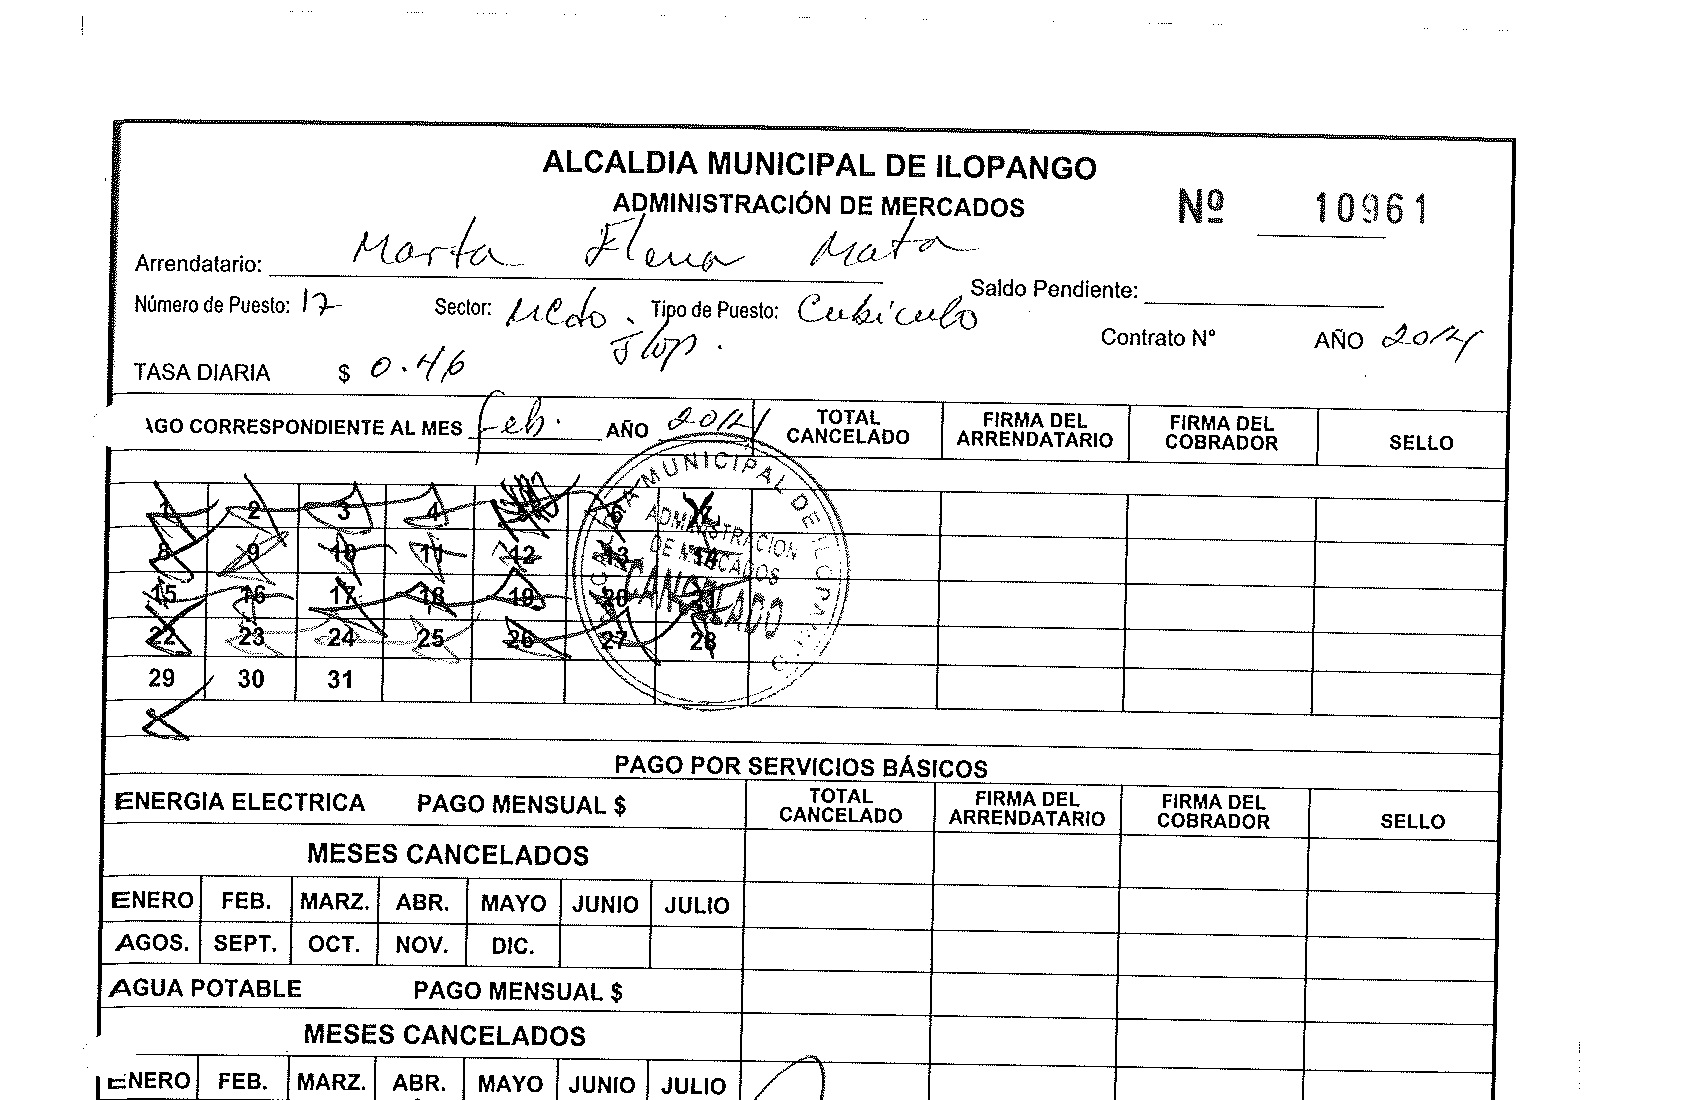 ALCALDIA MUNICIPAL DE ILOPANGO
ADMINISTRACIÓN DE MERCADOS
Nº 10961
Arrendatario: Marta Elena Mata
Saldo Pendiente:
Número de Puesto: 17 Sector: Mcdo. Ilop. Tipo de Puesto: Cubiculo
Contrato Nº AÑO 2014
TASA DIARIA $ 0.46
AGO CORRESPONDIENTE AL MES Feb. AÑO 2014 TOTAL CANCELADO FIRMA DEL ARRENDATARIO FIRMA DEL COBRADOR SELLO
ALCALDIA MUNICIPAL DE ILOPANGO
ADMINISTRACION
DE MERCADOS
CANCELADO
1 2 3 4 5 6 7
8 9 10 11 12 13 14
15 16 17 18 19 20 21
22 23 24 25 26 27 28
29 30 31
PAGO POR SERVICIOS BÁSICOS
ENERGIA ELECTRICA PAGO MENSUAL $ TOTAL CANCELADO FIRMA DEL ARRENDATARIO FIRMA DEL COBRADOR SELLO
MESES CANCELADOS
ENERO FEB. MARZ. ABR. MAYO JUNIO JULIO
AGOS. SEPT. OCT. NOV. DIC.
AGUA POTABLE PAGO MENSUAL $
MESES CANCELADOS
ENERO FEB. MARZ. ABR. MAYO JUNIO JULIO